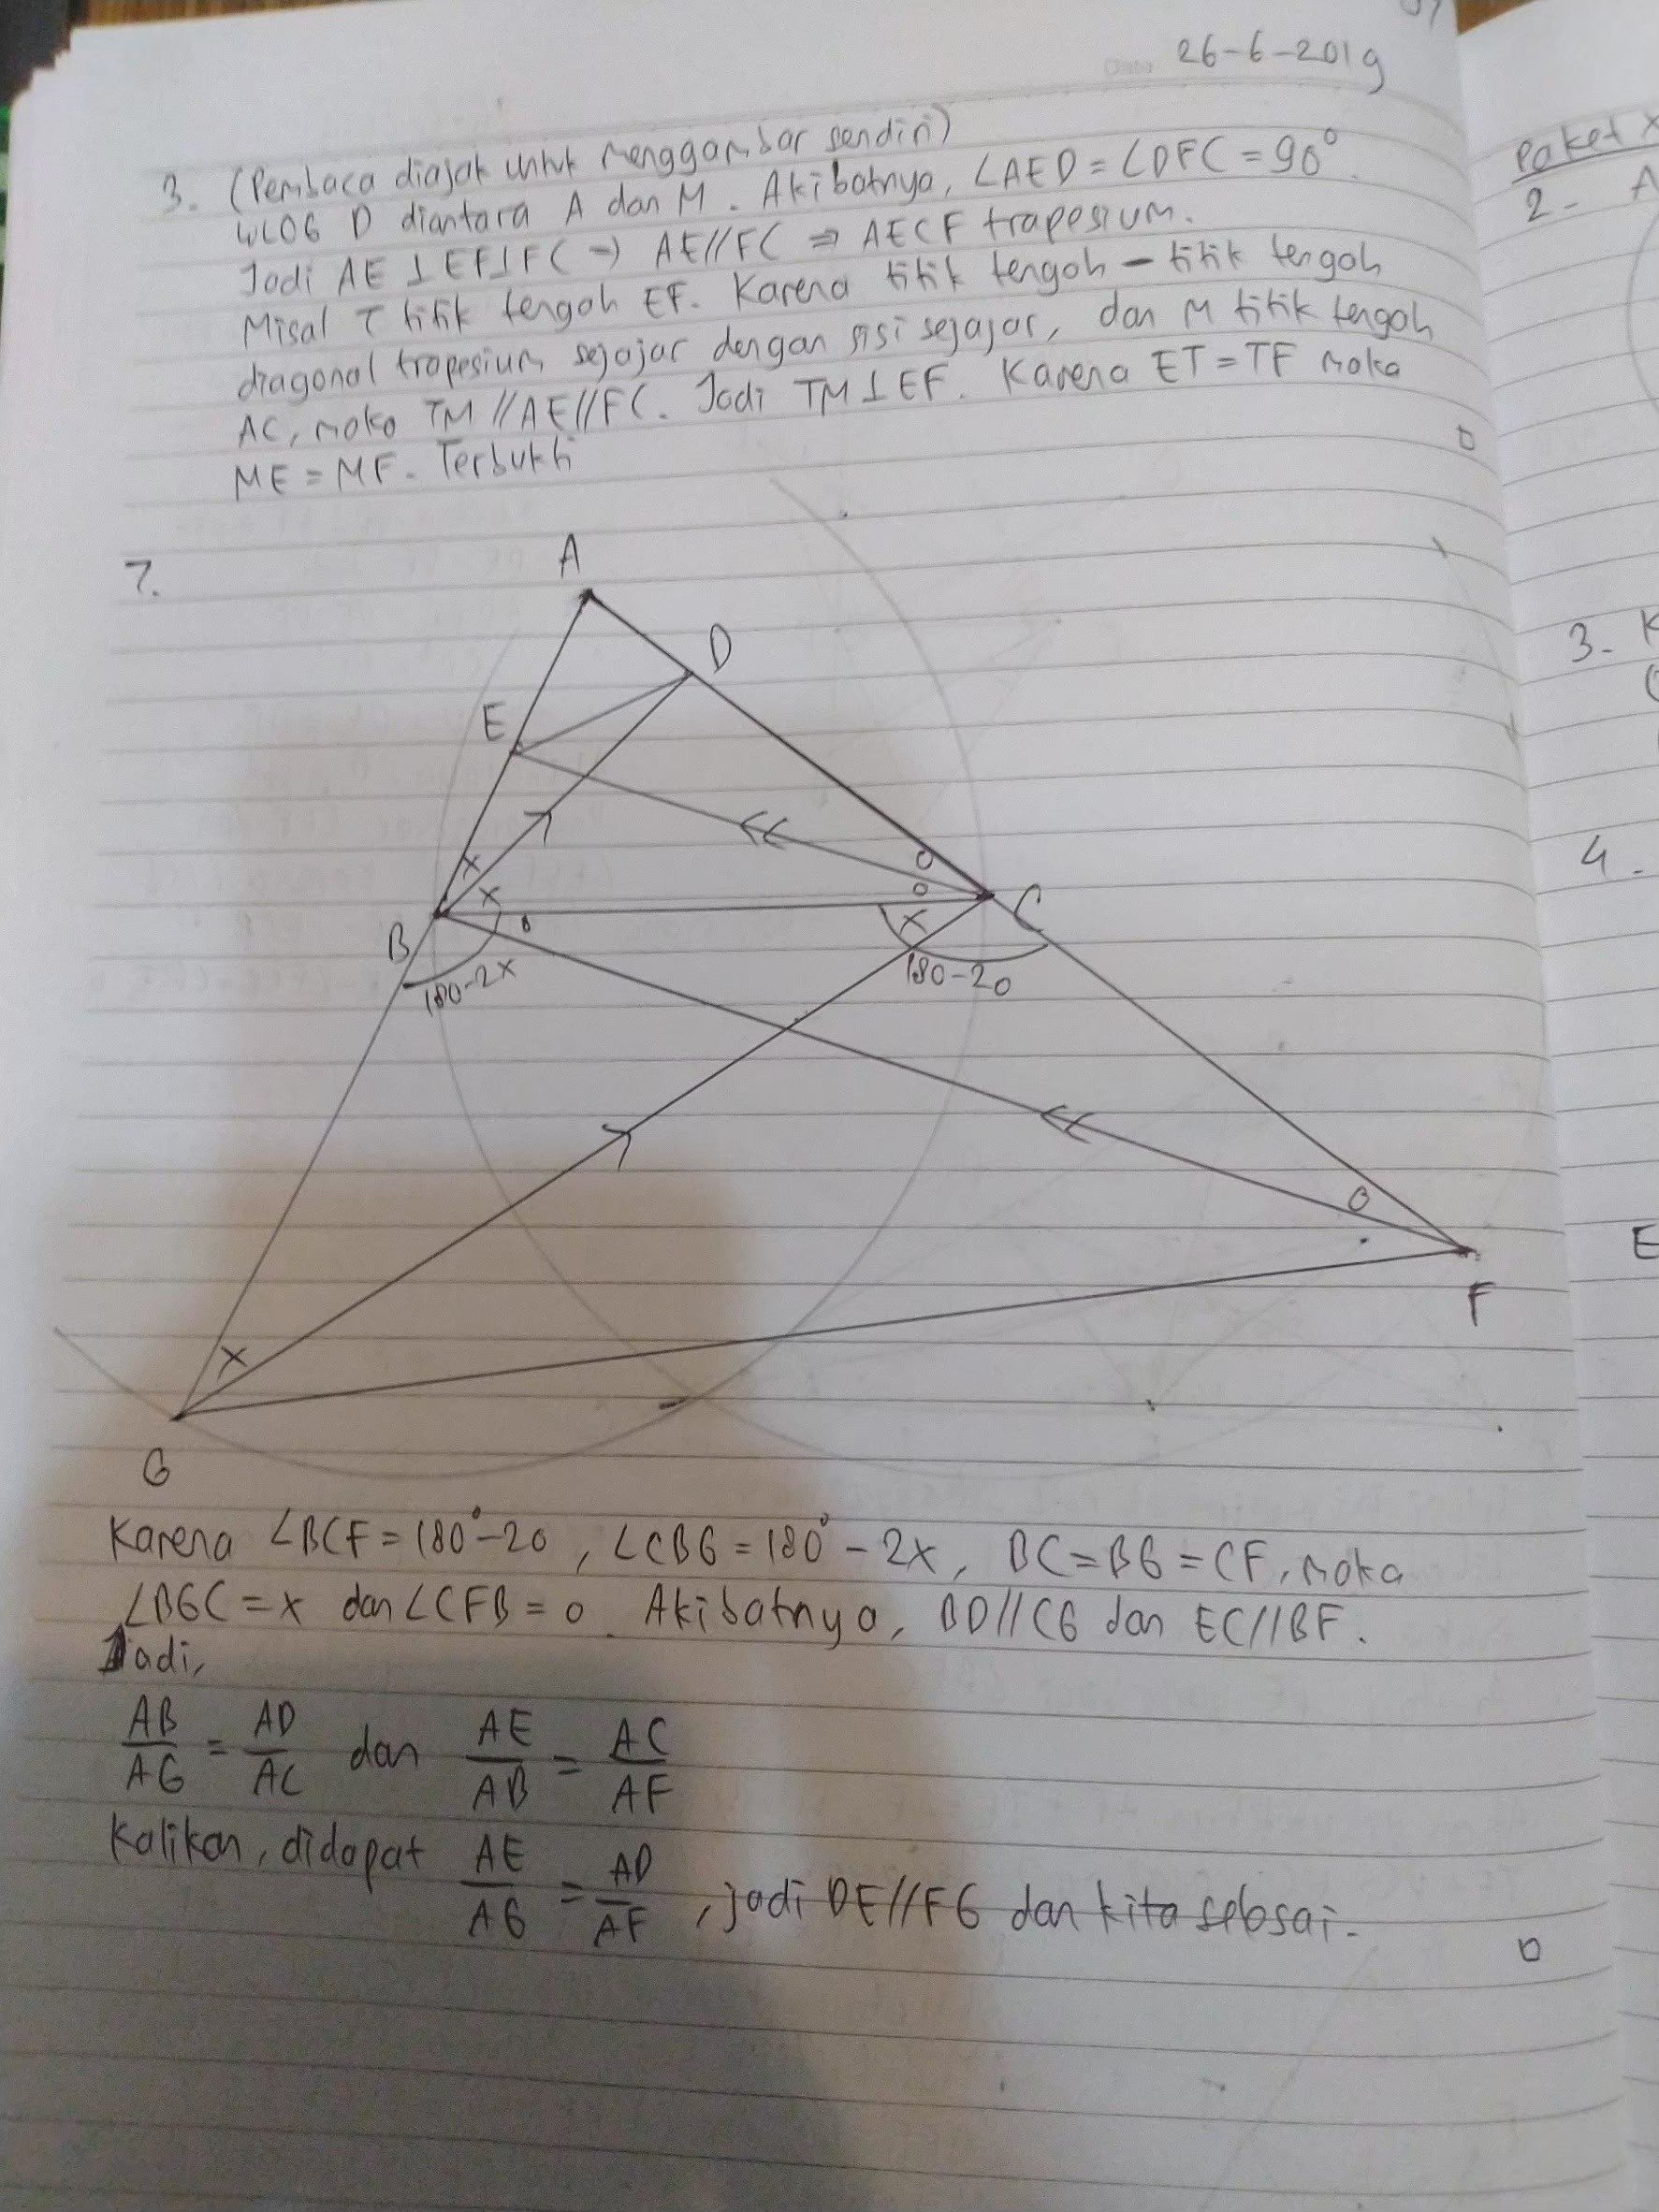 Date 26-6-2019
3. (Pembaca diajak untuk menggambar sendiri)
WLOG D diantara A dan M. Akibatnya, ∠AED = ∠DFC = 90°.
Jadi AE ⊥ EF ⊥ FC → AE // FC ⇒ AECF trapesium.
Misal T titik tengah EF. Karena titik tengah - titik tengah
diagonal trapesium sejajar dengan sisi sejajar, dan M titik tengah
AC, maka TM // AE // FC. Jadi TM ⊥ EF. Karena ET = TF maka
ME = MF. Terbukti
7.
A
D
E
x
x
o
o
o
B
C
x
180-2x
180-2o
o
x
F
G
Karena ∠BCF = 180°-2o, ∠CBG = 180° - 2x, BC = BG = CF, maka
∠BGC = x dan ∠CFB = o. Akibatnya, BD//CG dan EC//BF.
Jadi,
AB/AG = AD/AC dan AE/AB = AC/AF
Kalikan, didapat AE/AG = AD/AF, jadi DE//FG dan kita selesai.
Paket
2. A
3. K
(
4.
E